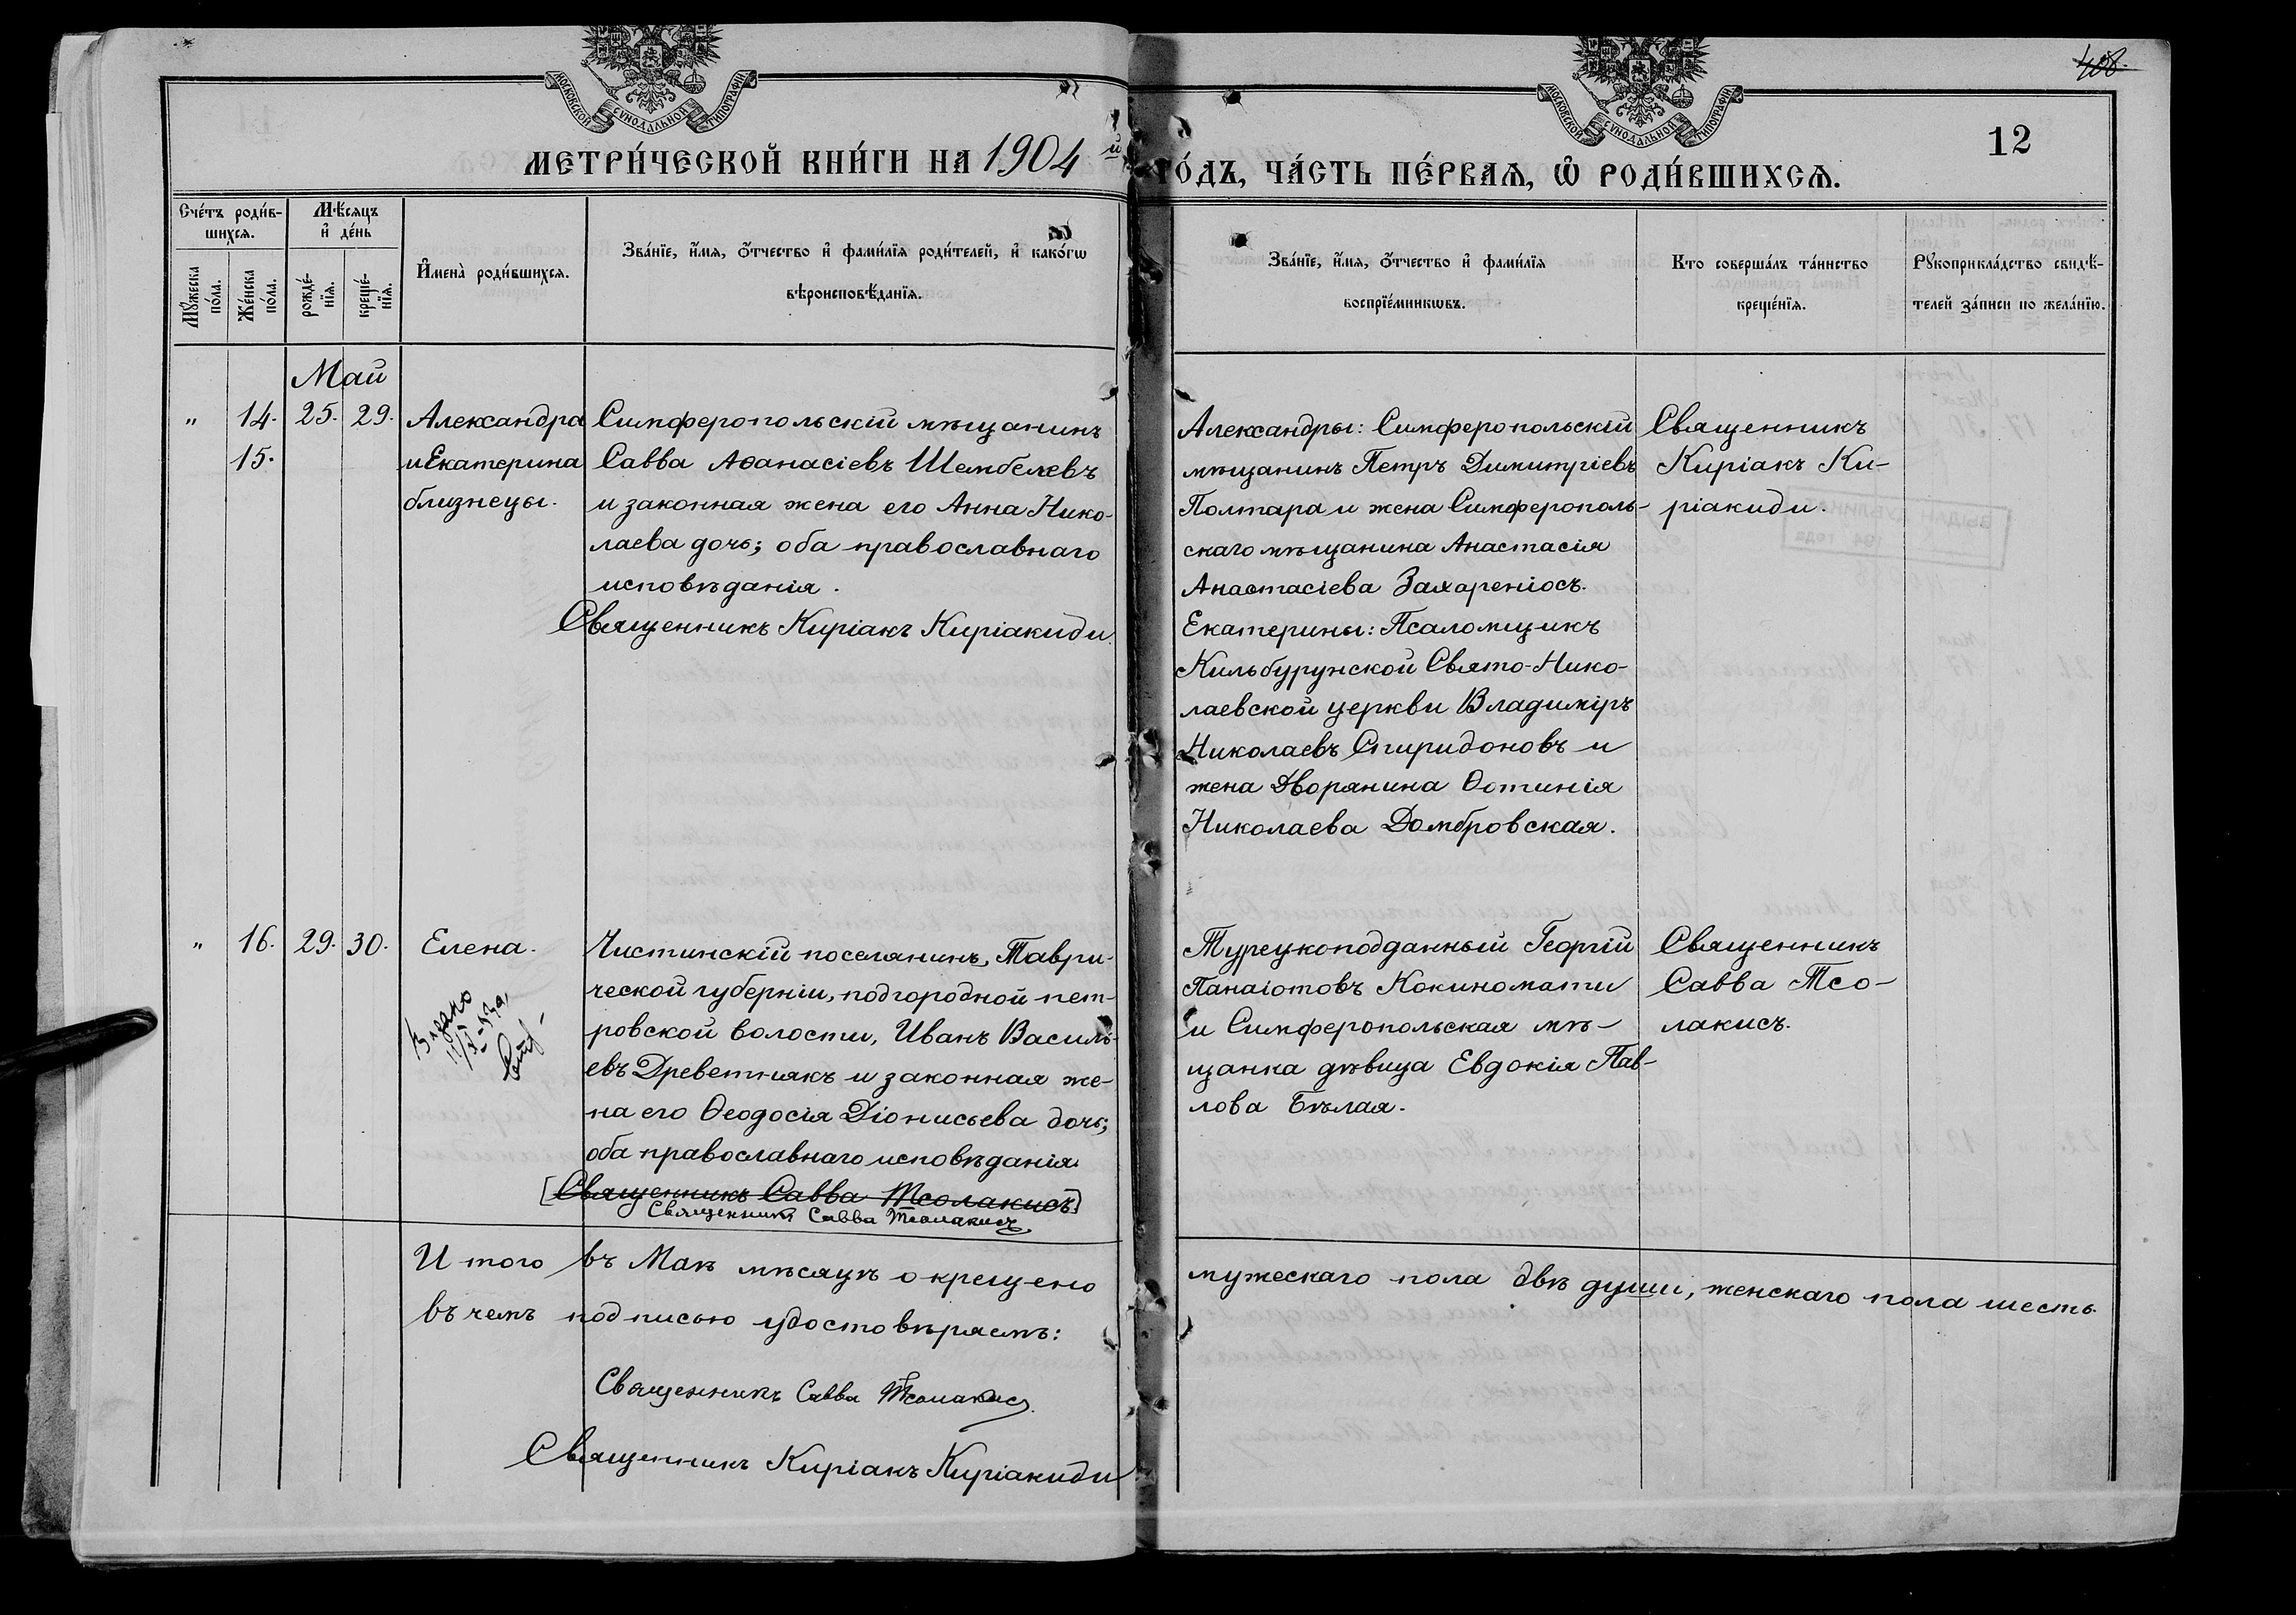 МОСКОВСКОЙ СѴНОДАЛЬНОЙ ТИПОГРАФІИ
МОСКОВСКОЙ СѴНОДАЛЬНОЙ ТИПОГРАФІИ
408.
12
МЕТРИ́ЧЕСКОЙ КНИ́ГИ НА 1904 й
ГО́ДЪ, ЧА́СТЬ ПЕ́РВАѦ, Ѡ҆ РОДИ́ВШИХСѦ.
Сче́тъ роди́в-
шихсѧ.
Мꙋ́жеска
по́ла.
Же́нска
по́ла.
Мѣ́сѧцъ
и҆ де́нь
рожде́-
нїѧ.
креще́-
нїѧ.
И҆мена̀ роди́вшихсѧ.
Зва́нїе, и҆́мѧ, ѻ҆́тчество и҆ фами́лїѧ роди́телей, и҆ како́гѡ
вѣроисповѣ́данїѧ.
Зва́нїе, и҆́мѧ, ѻ҆́тчество и҆ фами́лїѧ
воспрїе́мникѡвъ.
Кто соверша́лъ та́инство
креще́нїѧ.
Рꙋкоприкла́дство свидѣ́-
телей за́писи по жела́нїю.
Май
„ 14. 25. 29.
15.
Александра
и Екатерина
близнецы.
Симферопольскій мѣщанинъ
Савва Аѳанасіевъ Шембелевъ
и законная жена его Анна Нико-
лаева дочь; оба православнаго
исповѣданія.
Священникъ Киріакъ Киріакиди.
Александры: Симферопольскій
мѣщанинъ Петръ Димитріевъ
Полтара и жена Симферополь-
скаго мѣщанина Анастасія
Анастасіева Захареніосъ.
Екатерины: Псаломщикъ
Кильбурунской Свято-Нико-
лаевской церкви Владиміръ
Николаевъ Спиридоновъ и
жена Дворянина Ѳотинія
Николаева Домбровская.
Священникъ
Киріакъ Ки-
ріакиди.
„ 16. 29. 30.
Елена.
Чистинскій поселянинъ, Таври-
ческой губерніи, подгородной-пет-
ровской волости, Иванъ Василь-
евъ Древетнякъ и законная же-
на его Ѳеодосія Діонисьева дочь;
оба православнаго исповѣданія.
[Священникъ Савва Тсолакисъ]
Священникъ Савва Тсолакисъ
Турецкоподданный Георгій
Панаіотовъ Кокиномати
и Симферопольская мѣ-
щанка дѣвица Евдокія Пав-
лова Бѣлая.
Священникъ
Савва Тсо-
лакисъ.
Итого въ Маѣ мѣсяцѣ окрещено
мужескаго пола двѣ души, женскаго пола шесть.
въ чемъ подписью удостовѣряемъ:
Священникъ Савва Тсолакис
Священникъ Киріакъ Киріакиди